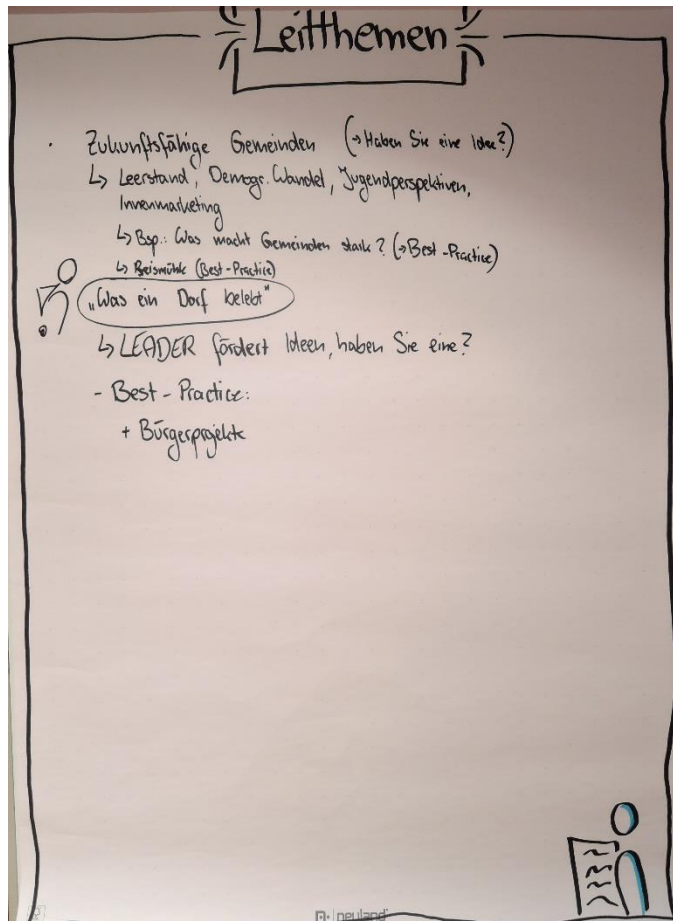 Leitthemen
· Zukunftsfähige Gemeinden (→ Haben Sie eine Idee?)
↳ Leerstand, Demogr. Wandel, Jugendperspektiven,
Innenmarketing
↳ Bsp.: Was macht Gemeinden stark? (→ Best-Practice)
↳ (Best-Practice)
„Was ein Dorf belebt"
↳ LEADER fördert Ideen, haben Sie eine?
- Best-Practice:
+ Bürgerprojekte
neuland